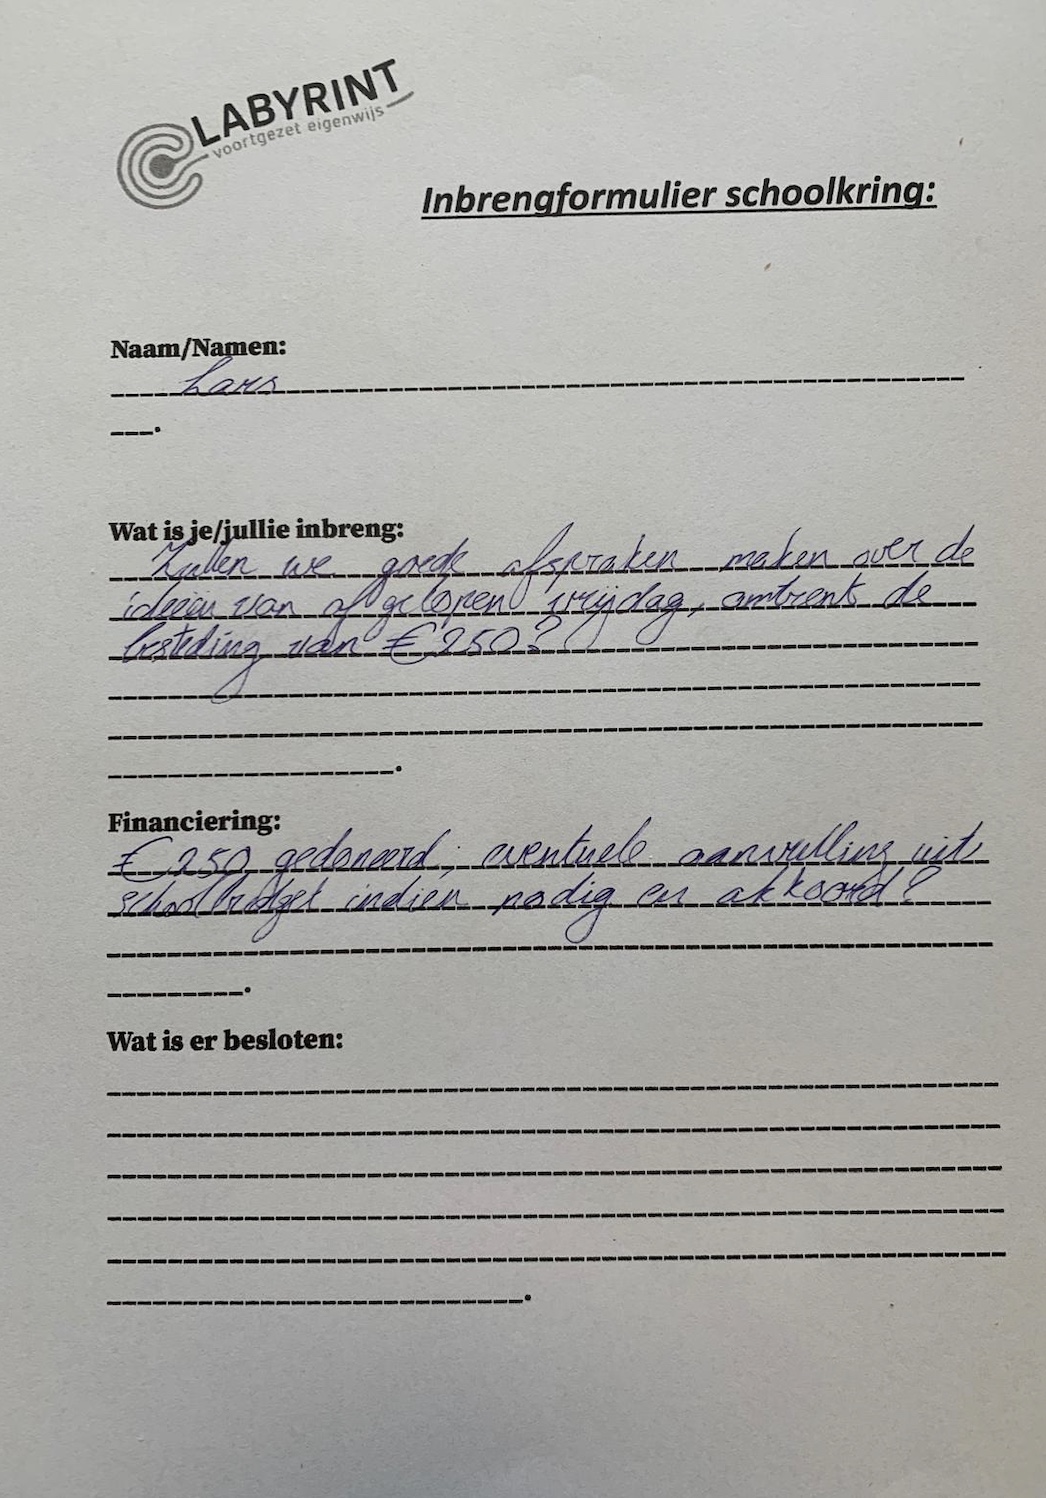 LABYRINT
voortgezet eigenwijs
Inbrengformulier schoolkring:
Naam/Namen:
Lars
Wat is je/jullie inbreng:
Zullen we goede afspraken maken over de
ideeën van afgelopen vrijdag, omtrent de
besteding van €250?
Financiering:
€250 gedoneerd; eventuele aanvulling uit
schoolbudget indien nodig en akkoord?
Wat is er besloten: